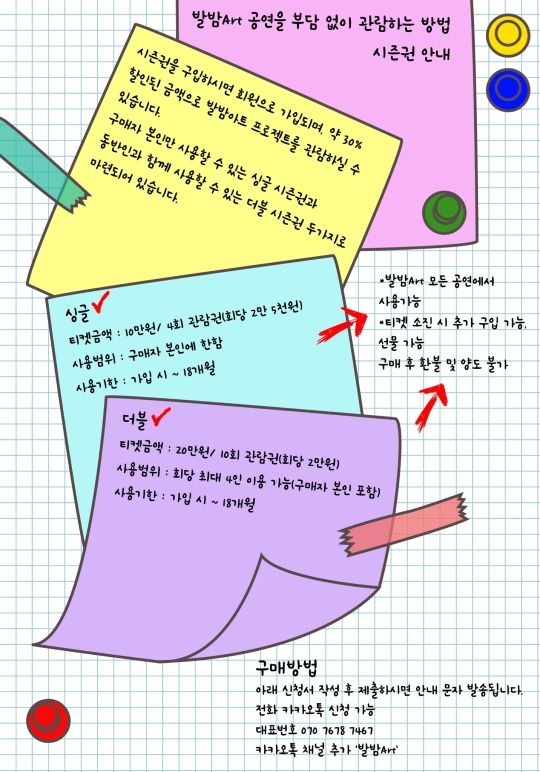 발밤Art 공연을 부담 없이 관람하는 방법
시즌권 안내
시즌권을 구입하시면 회원으로 가입되며, 약 30%
할인된 금액으로 발밤아트 프로젝트를 관람하실 수
있습니다.
구매자 본인만 사용할 수 있는 싱글 시즌권과
동반인과 함께 사용할 수 있는 더블 시즌권 두가지로
마련되어 있습니다.
싱글
티켓금액 : 10만원/ 4회 관람권(회당 2만 5천원)
사용범위 : 구매자 본인에 한함
사용기한 : 가입 시 ~ 18개월
*발밤Art 모든 공연에서
사용가능
*티켓 소진 시 추가 구입 가능,
선물 가능
구매 후 환불 및 양도 불가
더블
티켓금액 : 20만원/ 10회 관람권(회당 2만원)
사용범위 : 회당 최대 4인 이용 가능(구매자 본인 포함)
사용기한 : 가입 시 ~ 18개월
구매방법
아래 신청서 작성 후 제출하시면 안내 문자 발송됩니다.
전화 카카오톡 신청 가능
대표번호 070 7678 7467
카카오톡 채널 추가 '발밤Art'